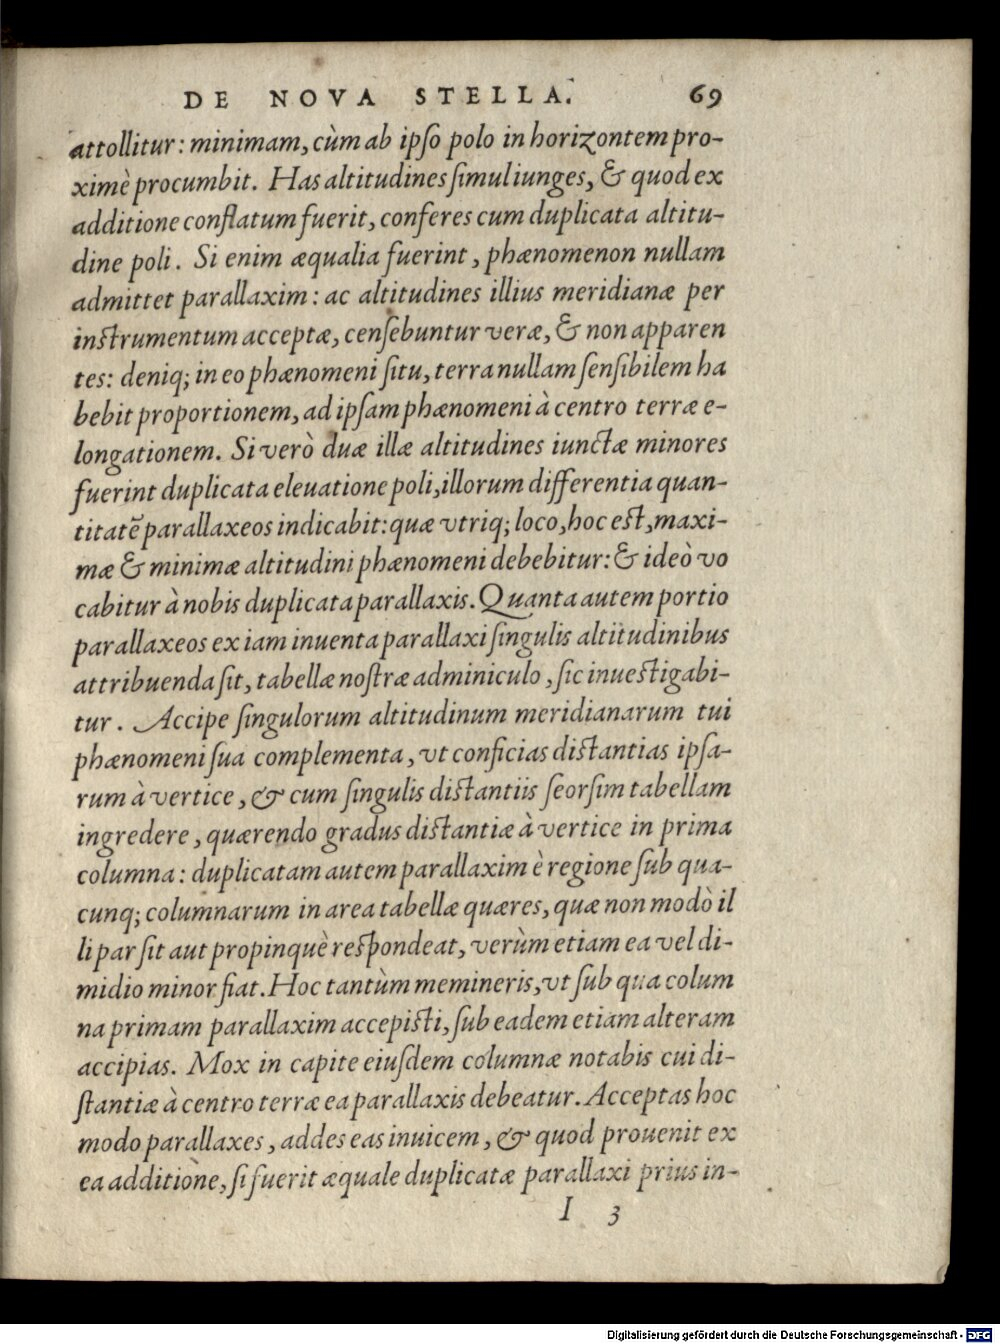 DE NOVA STELLA. 69
attollitur: minimam, cùm ab ipſo polo in horizontem pro-
ximè procumbit. Has altitudines ſimul iunges, & quod ex
additione conflatum fuerit, conferes cum duplicata altitu-
dine poli. Si enim æqualia fuerint, phænomenon nullam
admittet parallaxim: ac altitudines illius meridianæ per
inſtrumentum acceptæ, cenſebuntur veræ, & non apparen
tes: deniq; in eo phænomeni ſitu, terra nullam ſenſibilem ha
bebit proportionem, ad ipſam phænomeni à centro terræ e-
longationem. Si verò duæ illæ altitudines iunctæ minores
fuerint duplicata eleuatione poli, illorum differentia quan-
titatē parallaxeos indicabit: quæ vtriq; loco, hoc eſt, maxi-
mæ & minimæ altitudini phænomeni debebitur: & ideò vo
cabitur à nobis duplicata parallaxis. Quanta autem portio
parallaxeos ex iam inuenta parallaxi ſingulis altitudinibus
attribuenda ſit, tabellæ noſtræ adminiculo, ſic inueſtigabi-
tur. Accipe ſingulorum altitudinum meridianarum tui
phænomeni ſua complementa, vt conficias diſtantias ipſa-
rum à vertice, & cum ſingulis diſtantiis ſeorſim tabellam
ingredere, quærendo gradus diſtantiæ à vertice in prima
columna: duplicatam autem parallaxim è regione ſub qua-
cunq; columnarum in area tabellæ quæres, quæ non modò il
li par ſit aut propinquè reſpondeat, verùm etiam ea vel di-
midio minor fiat. Hoc tantùm memineris, vt ſub qua colum
na primam parallaxim accepiſti, ſub eadem etiam alteram
accipias. Mox in capite eiuſdem columnæ notabis cui di-
ſtantiæ à centro terræ ea parallaxis debeatur. Acceptas hoc
modo parallaxes, addes eas inuicem, & quod prouenit ex
ea additione, ſi fuerit æquale duplicatæ parallaxi prius in-
I 3
Digitalisierung gefördert durch die Deutsche Forschungsgemeinschaft - DFG